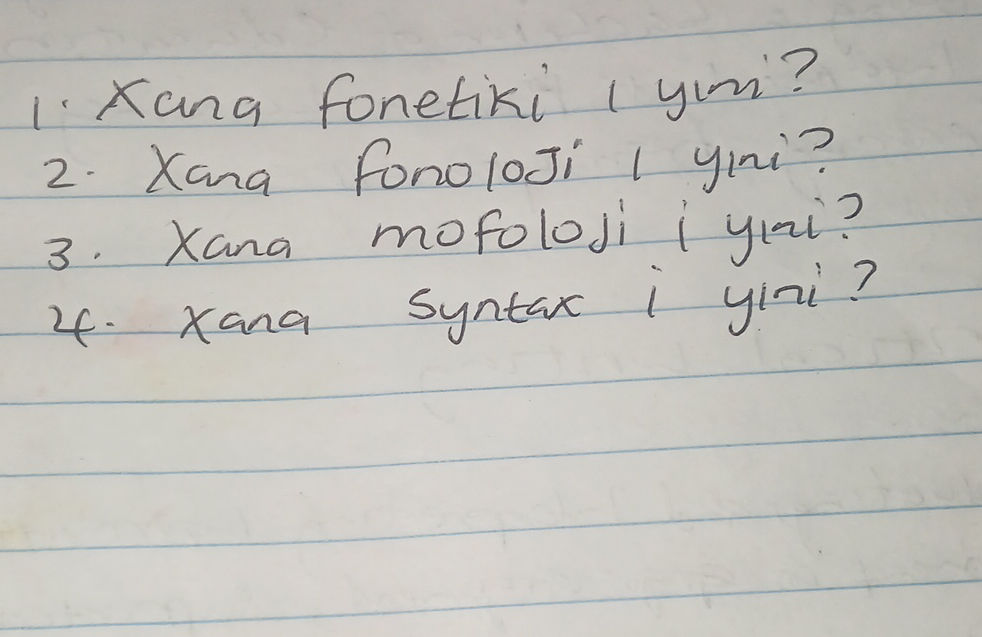 1. Xana fonetiki i yini?
2. Xana fonoloji i yini?
3. Xana mofoloji i yini?
4. Xana Syntax i yini?